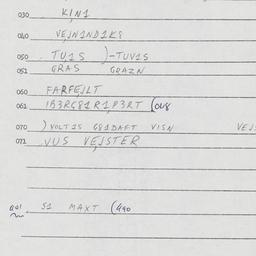 030 KIN1
040 VEJN1ND1KS
050 TU1S )-TUV1S
051 GRAS GRAZN
060 FARFEJLT
061 1B3RG81R1P3RT (048
070 ) VOLT1S G81DAFT VISN VEJS
071 VUS VEJSTER
S1 MAXT (490